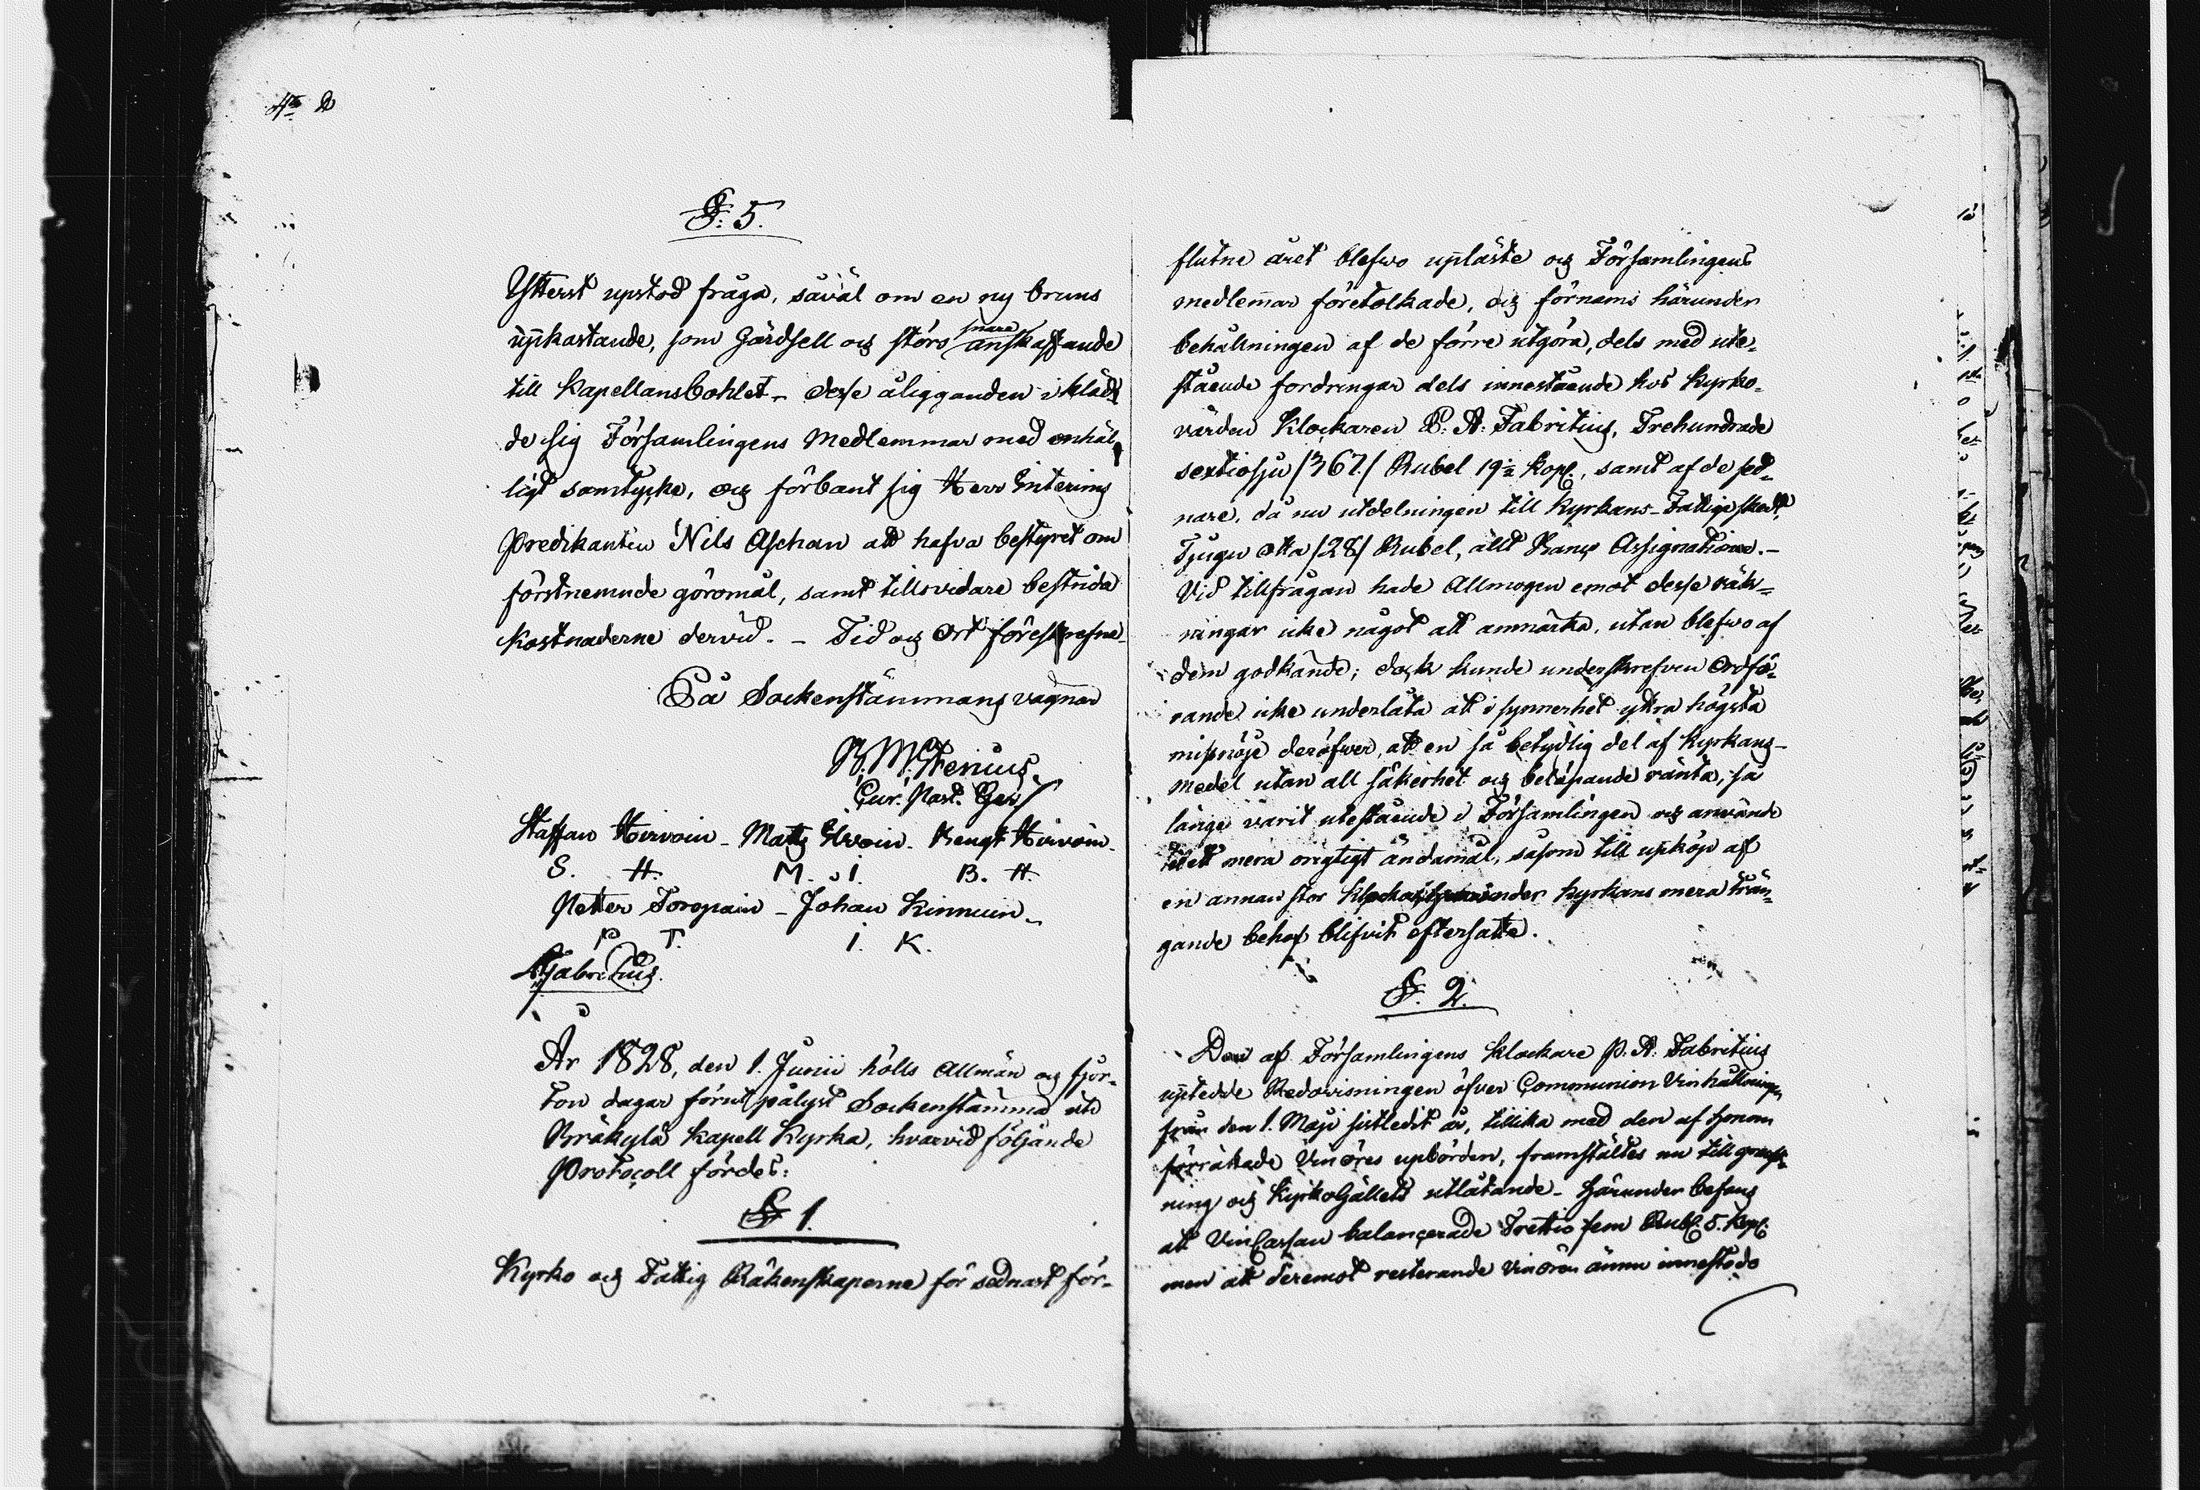 §: 5.
Ytterst upstod fråga, såväl om en ny bruns
uppkastande, som Gärdsell och störs snara anskaffande
till Kapellansbohlet. Desse åligganden iklädd
de sig Församlingens Medlemmar med enhäl
ligt samtycke, och förbant sig Herr Interims
Predikanten Nils Aschan att hafva bestyret om
förstnemnde göromål, samt tillsvidare bestrida
kostnaderne dervid. – Tid och Ort förestrefne
På Sockenstämmans vägnar
Cur. Past. Ger
Staffan Hirvoin – Matts Hirvoin. Bengt Hirvoin.
S. H. M. I. B. H.
Petter Toropain – Johan Kinnuin
P T. I. K.
Fabritius.
År 1828, den 1. Junii hölls Allmän och fjor-
ton dagar förut pålyst Sockenstämma uti
Bräkylä Kapell Kyrka, hvarvid följande
Protocoll fördes:
§ 1.
Kyrko och Fattig Räkenskaperne för sednast för-
flutne året blefwo uppläste och Församlingens
medlemmar företolkade, och förnams härunder
behållningen af de förre utgöra, dels med ute-
stående fordringar dels innestående hos Kyrko-
värden Klockaren P. A. Fabritius, Trehundrade
sextiosju /367/ Rubel 19½ kop., samt af de sed-
nare, då nu utdelningen till Kyrkans Fattige skedt,
Tjugu otta /28/ Rubel, allt Banco Assignationer. –
Vid tillfrågan hade Allmogen emot desse räk-
ningar icke något att anmärka, utan blefwo af
dem godkände; dock kunde underskrefven Ordfö-
rande icke underlåta att i synnerhet yttra högsta
missnöje deröfwer, att en så betydlig del af Kyrkans
medel utan all säkerhet och betäpande ränta, så
länge varit utestående i Församlingen och använde
till ett mera origtigt ändamål, såsom till upköp af
en annan stor Klocka, under Kyrkans mera trän-
gande behof blifvit eftersatte.
§. 2.
Den af Församlingens Klockare P. A. Fabritius
upptedde Redovisningen öfver Communion Vinhållningen
från den 1. Maji sistledit år, tillika med den af honom
förrättade Vinöres upbörden, framstältes nu till gransk-
ning och Kyrko Gällets utlåtande. Härunder befans
att VinCassan balancerade Trettio fem Rubl. 5. Kop.
men att deremot resterande Vinören ännu innestodo